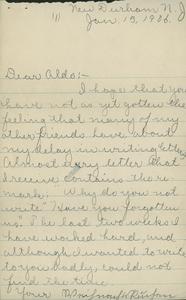 New Durham N.J.
Jan. 15, 1936.
Dear Aldo:-
I hope that you
have not as yet gotten the
feeling that many of my
other friends have about
my delay in writing letters.
Almost every letter that
I receive contains the re-
mark; "Why do you not
write" "Have you forgotten
us." The last two weeks I
have worked hard, and
although I wanted to write
to you badly, could not
find the time.